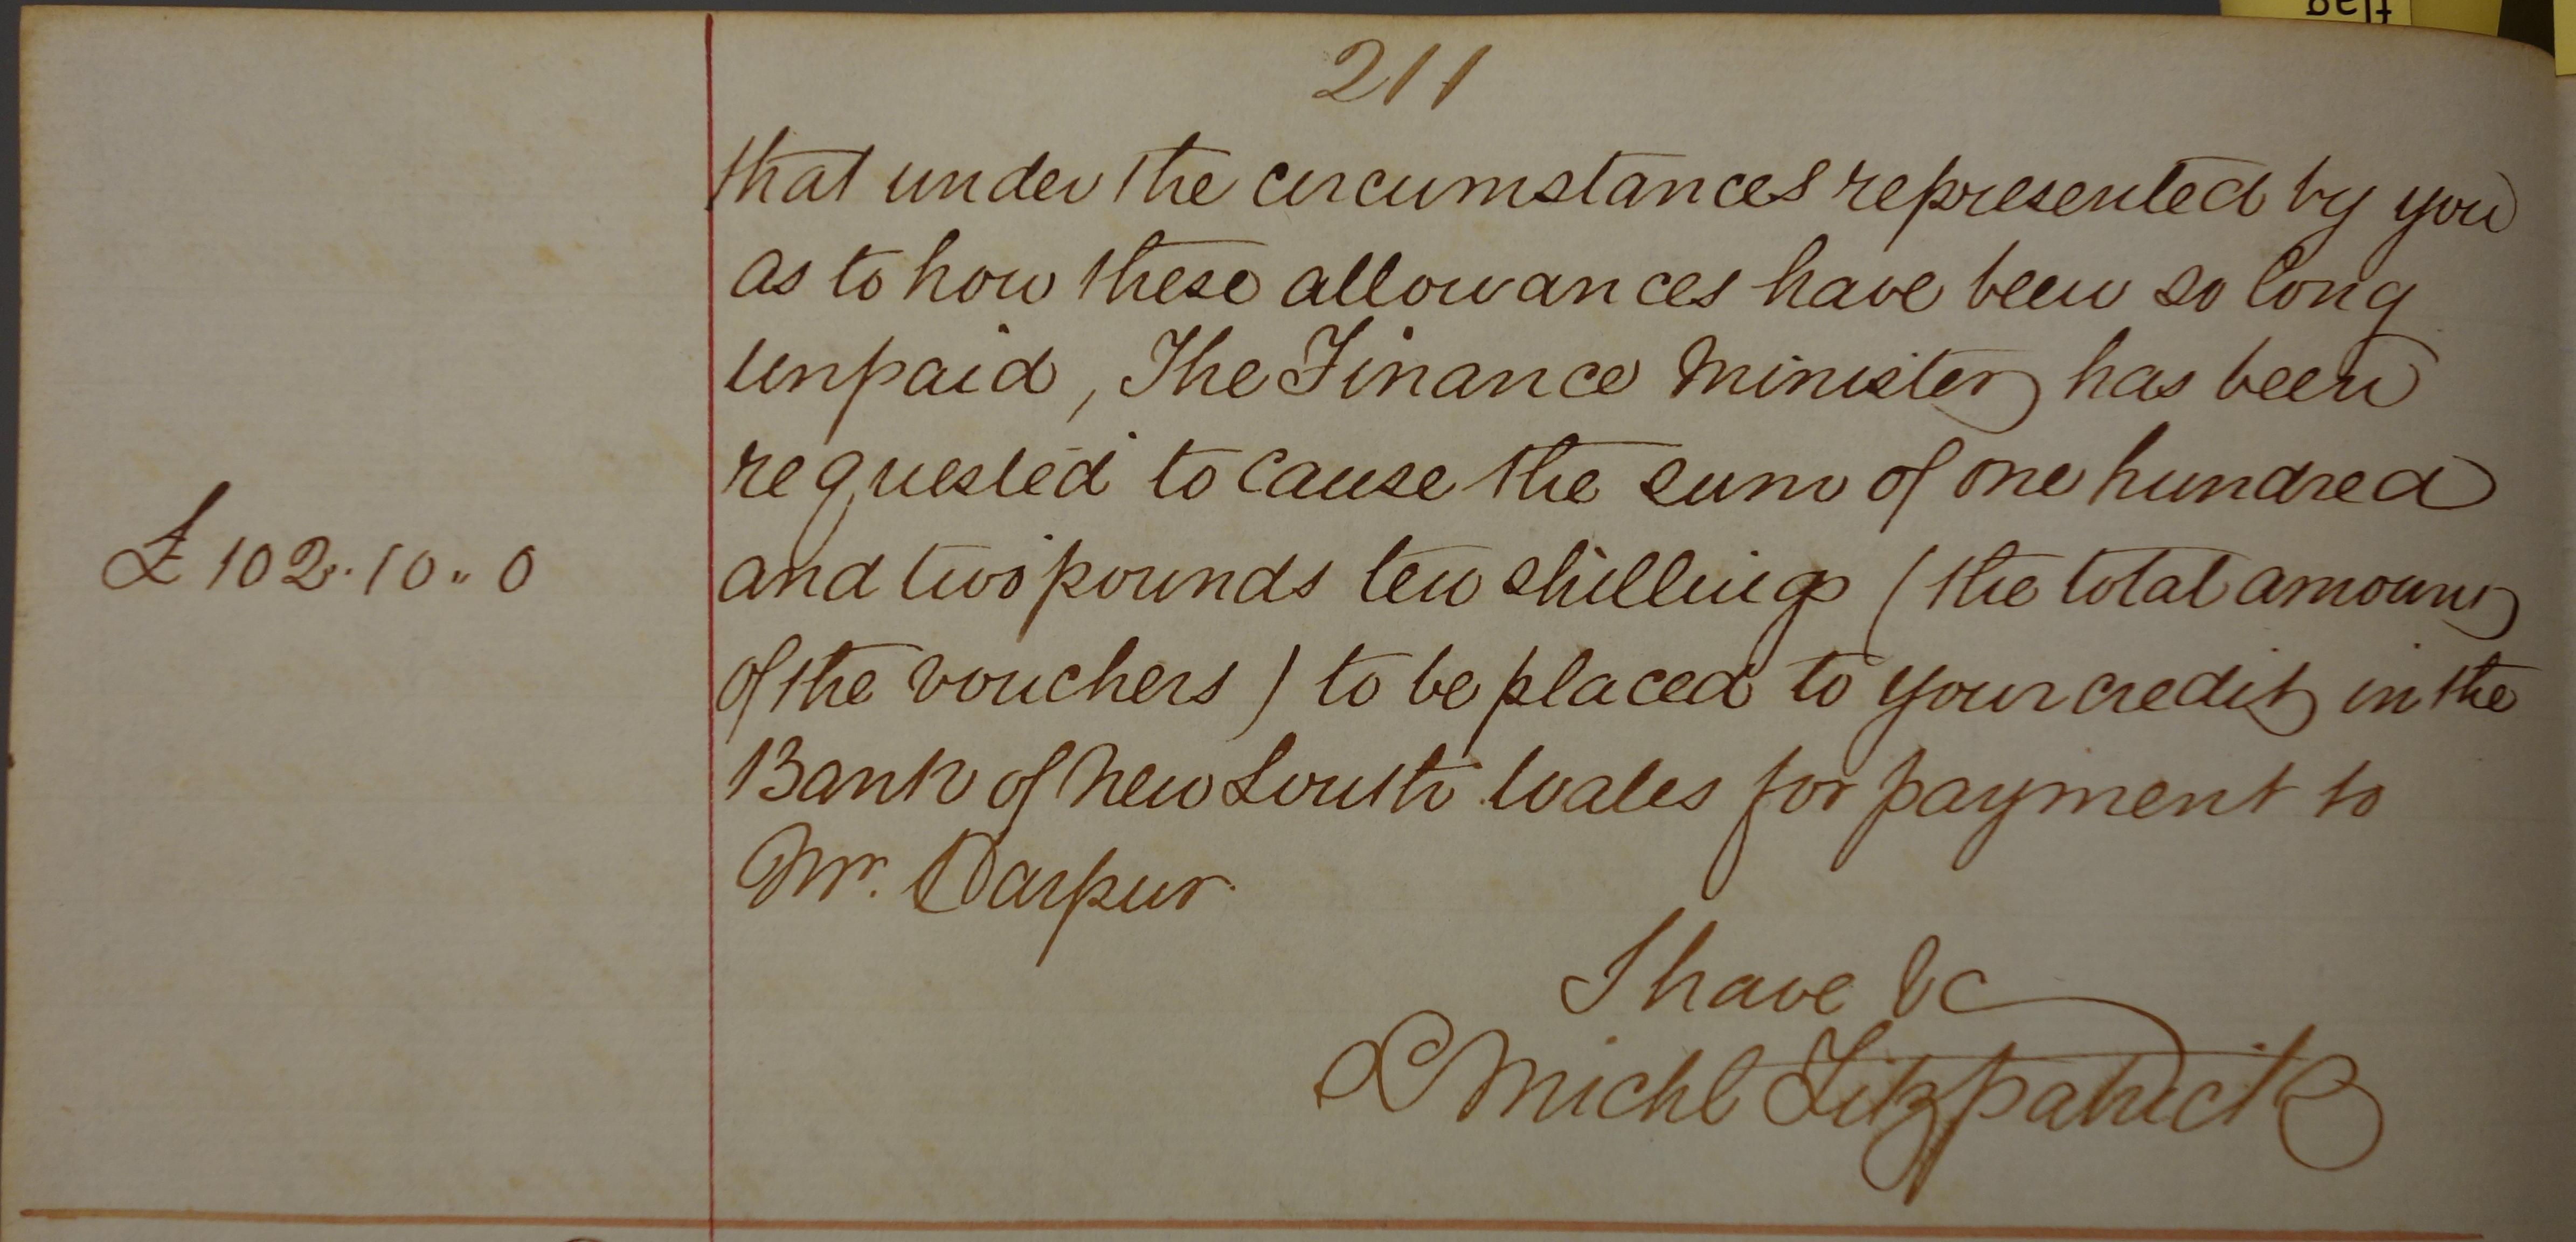 211
that under the circumstances represented by you
as to how these allowances have been so long
unpaid, The Finance Minister has been
requested to cause the sum of one hundred
£102.10.. 0
and two pounds ten shillings (the total amount
of the vouchers) to be placed to your credit in the
Bank of New South Wales for payment to
Mr. Darpur.
I have &c
Michl Fitzpatrick